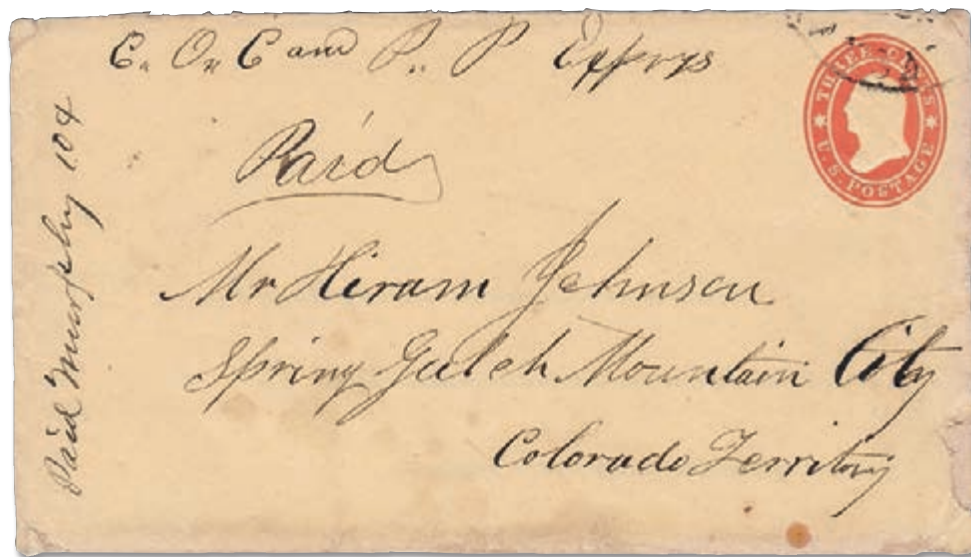 C. O. C and P. P Express
THREE CENTS
U.S. POSTAGE
Paid
Mr Hiram Johnson
Spring Gulch Mountain City
Colorado Territory
Paid Murphy 104